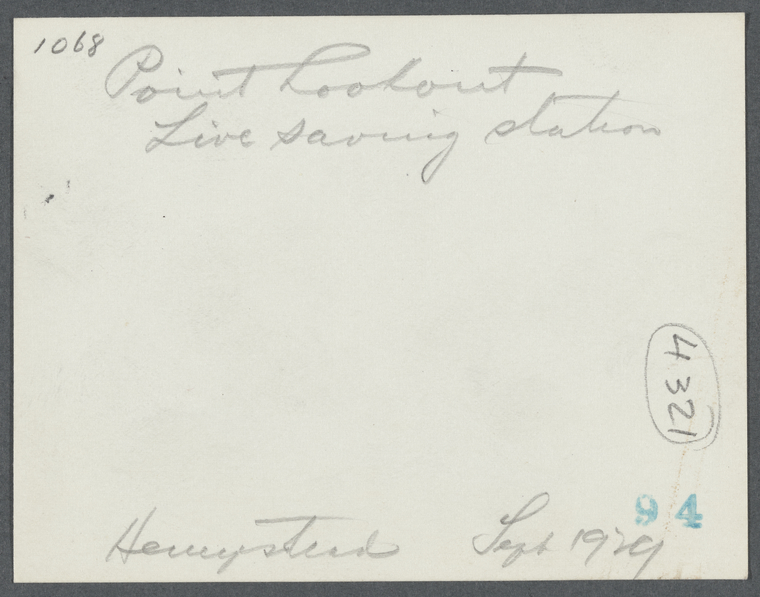 1068
Point Lookout
Live saving station
4321
94
Hempstead Sept 1929